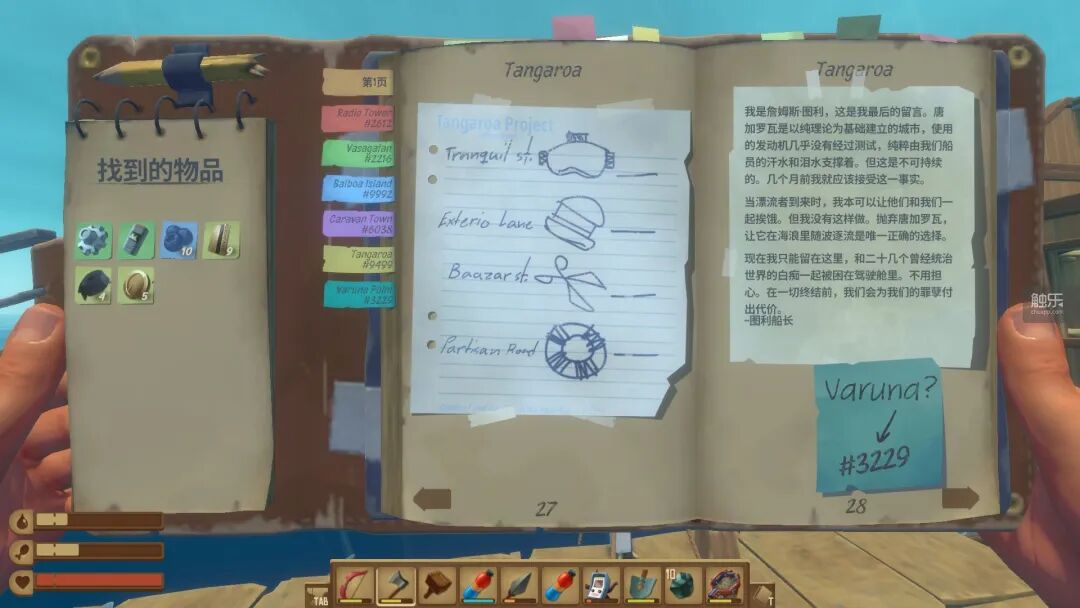 找到的物品
10
9
4
5
第1页
Radio Tower
#2612
Vasagatan
#2216
Balboa Island
#9992
Caravan Town
#6038
Tangaroa
#9499
Varuna Point
#3229
Tangaroa
Tangaroa Project
Tranquil st.
Exterio Lane
Baazar st.
Partisan Road
27
Tangaroa
我是詹姆斯·图利，这是我最后的留言。唐
加罗瓦是以纯理论为基础建立的城市，使用
的发动机几乎没有经过测试，纯粹由我们船
员的汗水和泪水支撑着。但这是不可持续
的。几个月前我就应该接受这一事实。
当漂流者到来时，我本可以让他们和我们一
起挨饿。但我没有这样做。抛弃唐加罗瓦，
让它在海浪里随波逐流是唯一正确的选择。
现在我只能留在这里，和二十几个曾经统治
世界的白痴一起被困在驾驶舱里。不用担
心。在一切终结前，我们会为我们的罪孽付
出代价。
-图利船长
Varuna?
#3229
28
触乐
chuapp.com
TAB
10
T